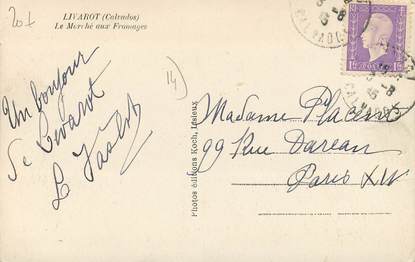 20f
LIVAROT (Calvados)
Le Marché aux Fromages
14
Un bonjour
de Livarot
Photos éditions Koch, Lisieux
Madame
99 Rue Dareau
Paris XIV
CALVADOS